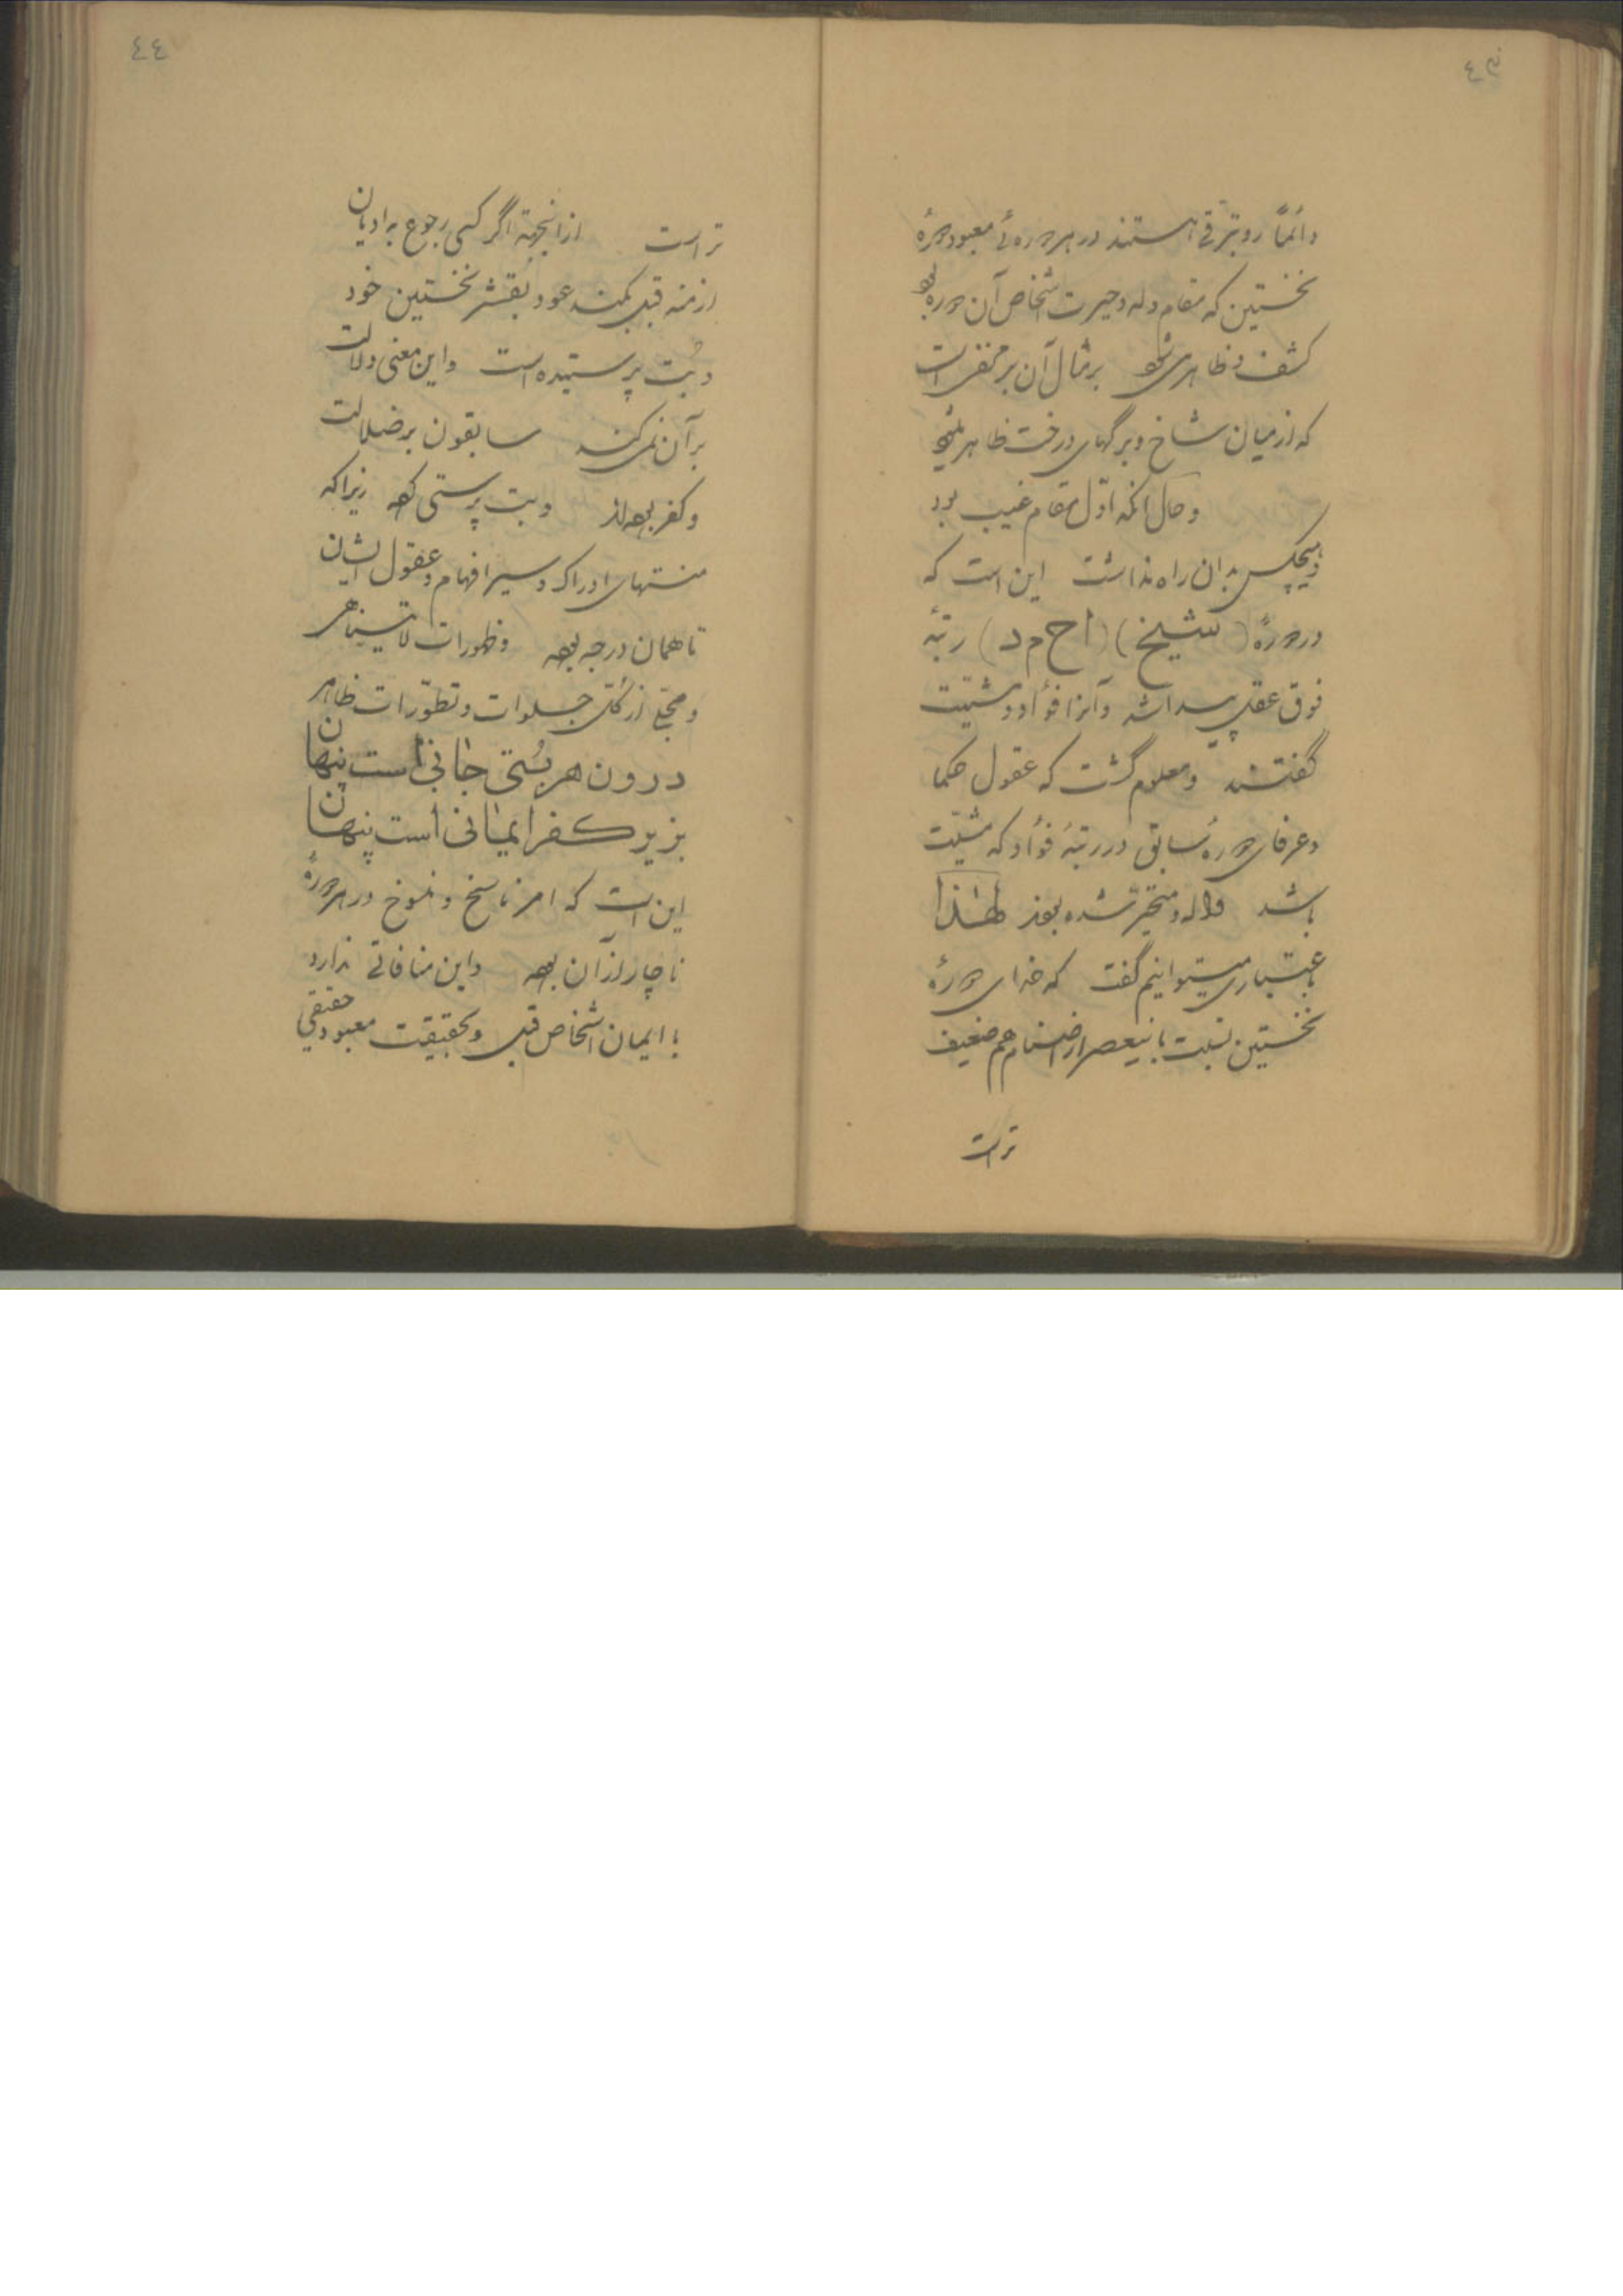 ٤٣
دائماً رو بترقی هستند در هر دوره‌ئی معبود دورهٔ
نخستین که مقام وله و حیرت اشخاص آن دوره بود
کشف و ظاهر می شود بر مثال آن بر است
که از میان شاخ و برگهای درخت ظاهر میشود
و حال آنکه اوّل مقام غیب بود
و هیچکس بدان راه نداشت این است که
در دورهٔ (شیخ) (اح م د) رتبهٔ
فوق عقل پیدا شد و آنرا فؤاد و مشیّت
گفتند و معلوم گشت که عقول حکما
و عرفای دورهٔ سابق در رتبهٔ فؤاد که مشیّت
باشد واله و متحیّر شده بودند لهذا
باعتباری میتوانیم گفت که خدای دورهٔ
نخستین نسبت باینعصر از اصنام هم ضعیف
تر است
٤٤
تر است از اینجهة اگر کسی رجوع به ادیان
ازمنه قبل بکند عود بقشر نخستین خود
و بُت پرستیده است و این معنی دلالت
بر آن نمی کند سابقون بر ضلالت
و کفر بوده‌اند و بت پرستی کرده زیرا که
منتهای ادراک و سیر افهام و عقول ایشان
تا همان درجه بوده و ظهورات لا یتناهی
و تجلّی از کلّ جلوات و تطوّرات ظاهر
درون هر بُتی جانی است پنهان
بزیر کفر ایمانی است پنهان
این است که امر ناسخ و منسوخ در هر دورهٔ
ناچار از آن بوده و این منافاتی ندارد
با ایمان اشخاص قبل و بحقیقت معبود حقیقی